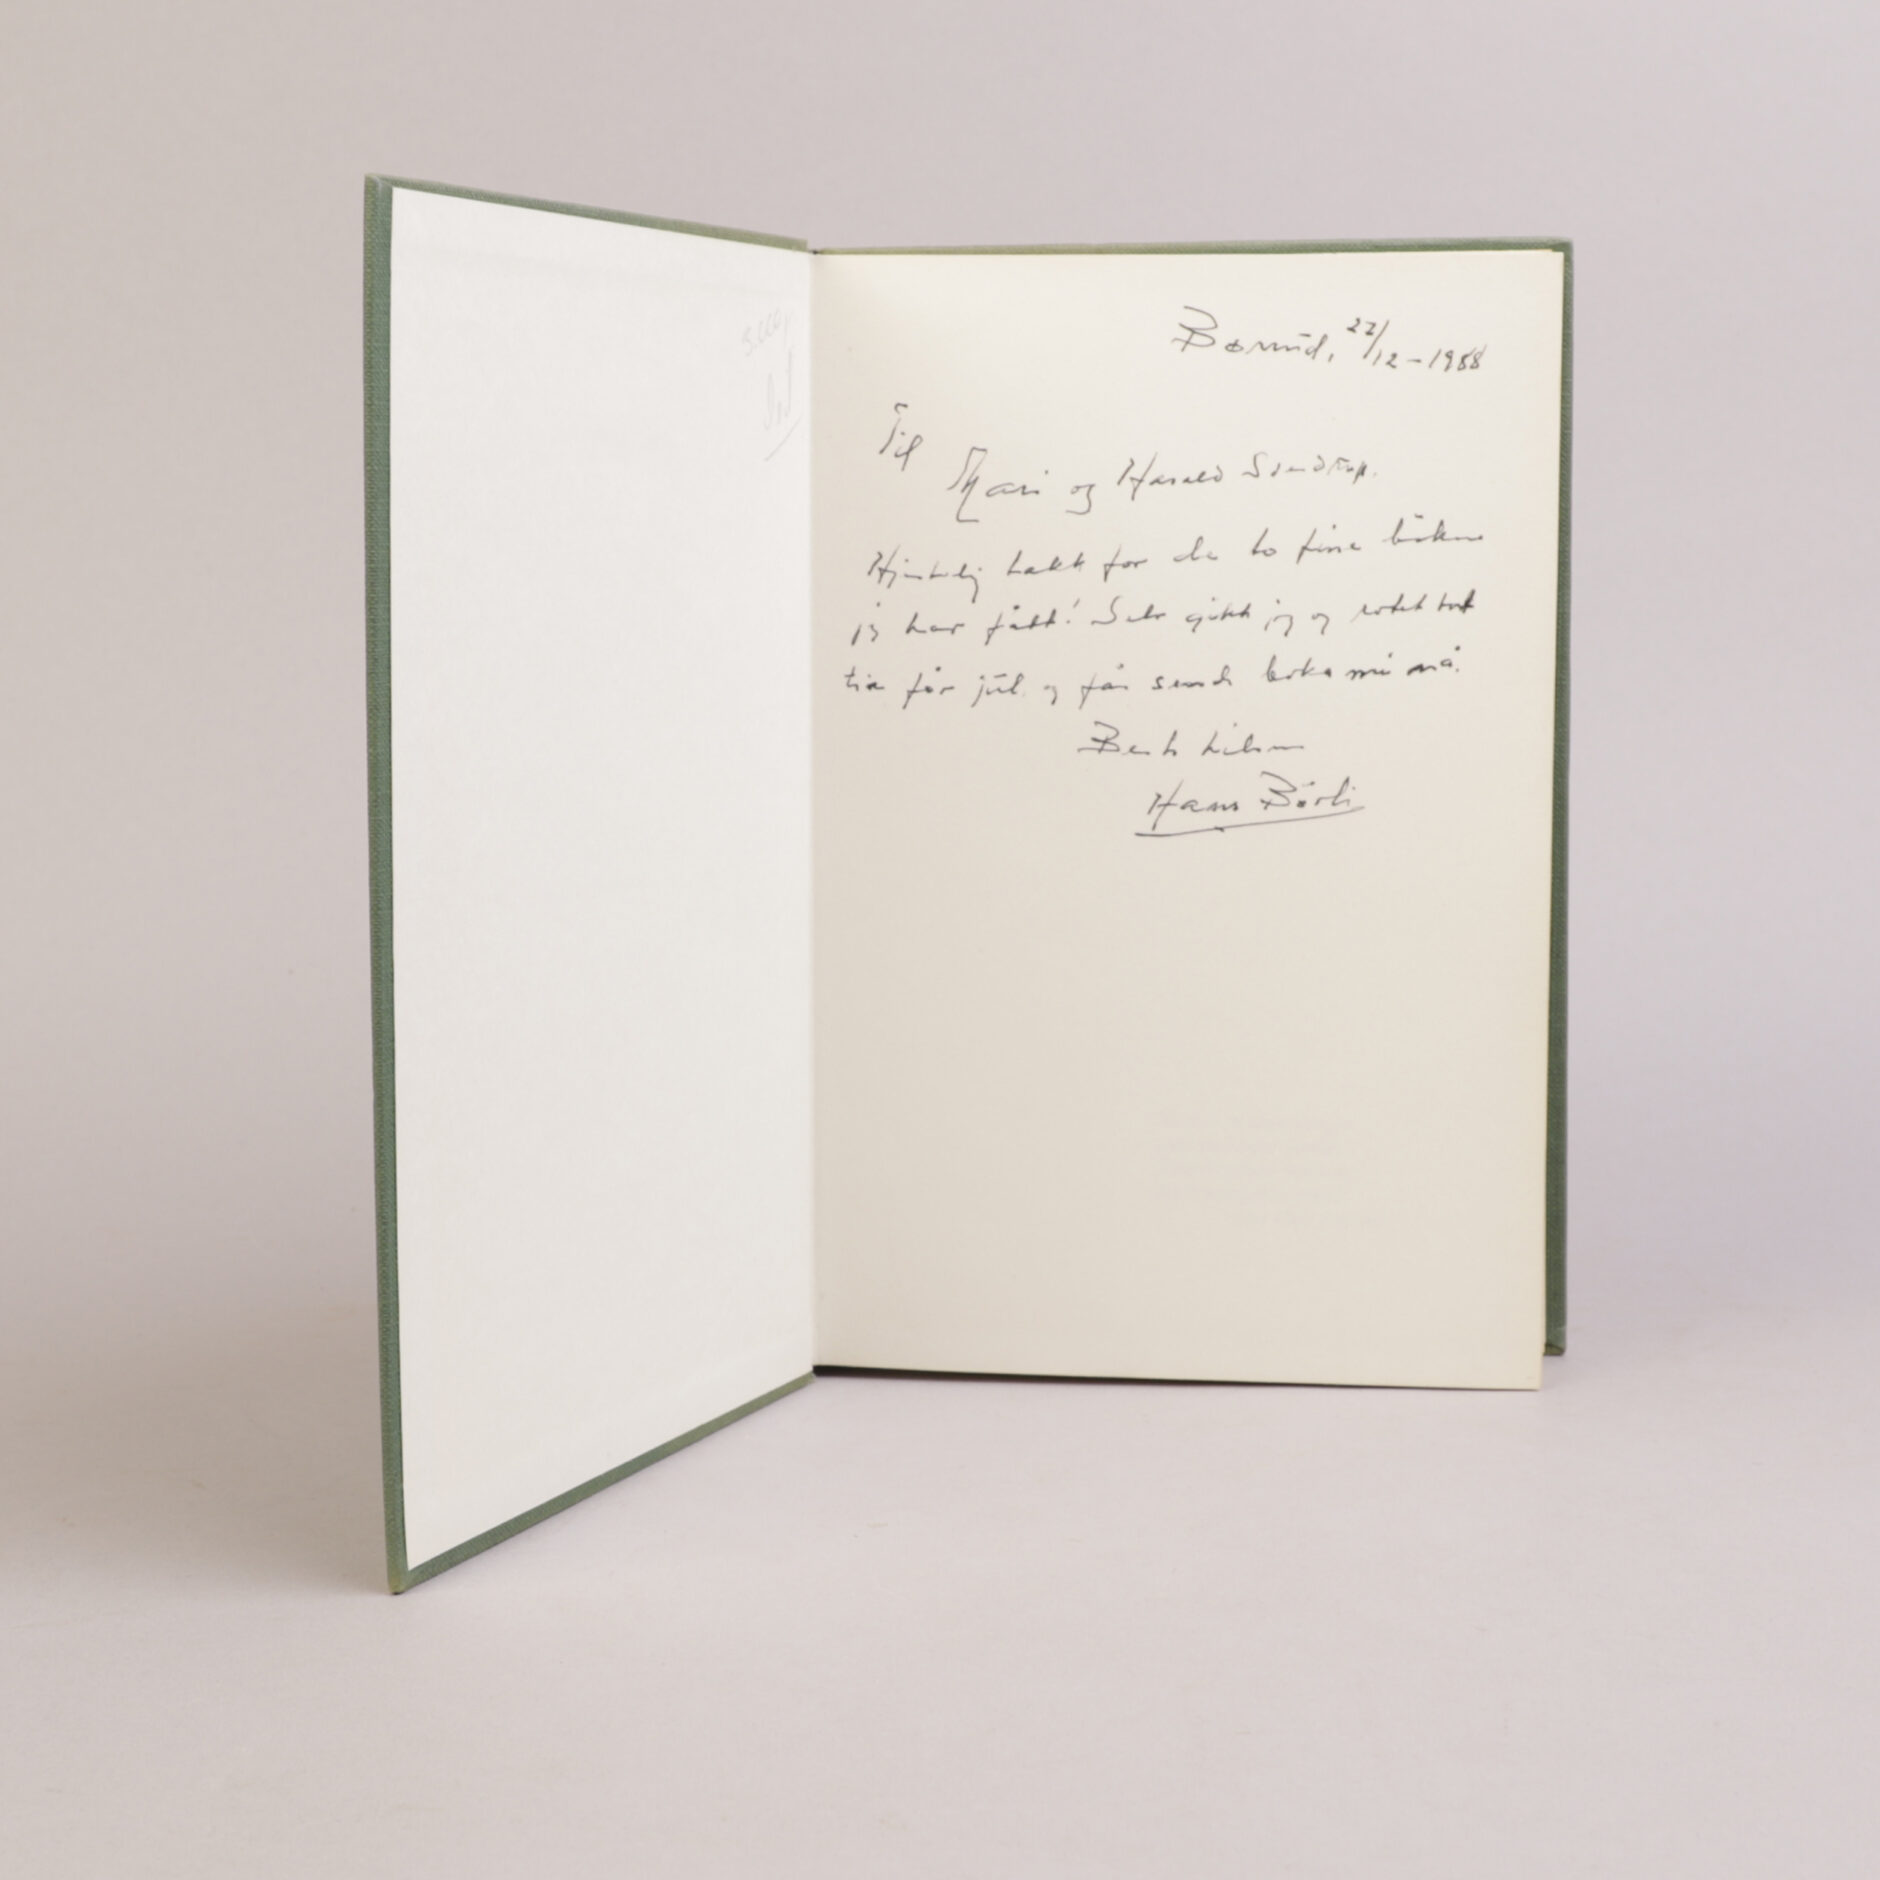 Børrud, 22/12 - 1988
Til
Mari og Harald Sverdrup.
Hjertelig takk for de to fine bøkene
jeg har fått! Selv gikk jeg og rotet bort
tia før jul og får sende boka mi nå.
Beste hilsen
Hans Børli